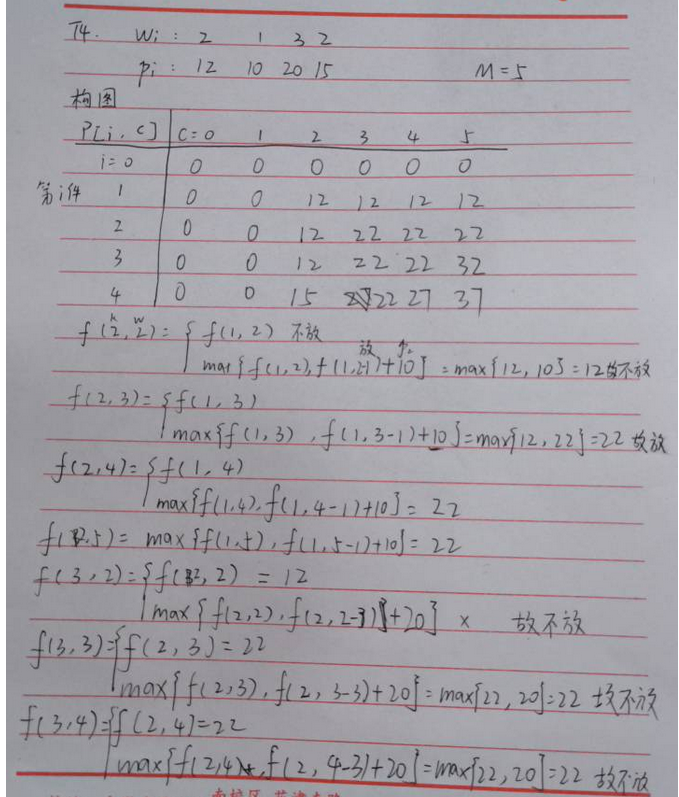 T4. Wi: 2 1 3 2
Pi: 12 10 20 15 M=5
构图
P[i,c] C=0 1 2 3 4 5
i=0 0 0 0 0 0 0
第i件 1 0 0 12 12 12 12
2 0 0 12 22 22 22
3 0 0 12 22 22 32
4 0 0 15 22 27 37
k w
f(2,2)={f(1,2) 不放
放
max{f(1,2),f(1,2-1)+10}=max{12,10}=12故不放
f(2,3)={f(1,3)
max{f(1,3),f(1,3-1)+10}=max{12,22}=22 故放
f(2,4)={f(1,4)
max{f(1,4),f(1,4-1)+10}=22
f(2,5)=max{f(1,5),f(1,5-1)+10}=22
f(3,2)={f(2,2)=12
max{f(2,2),f(2,2-3)}+20} × 故不放
f(3,3)={f(2,3)=22
max{f(2,3),f(2,3-3)+20}=max{22,20}=22 故不放
f(3,4)={f(2,4)=22
max{f(2,4),f(2,4-3)+20}=max{22,20}=22 故不放